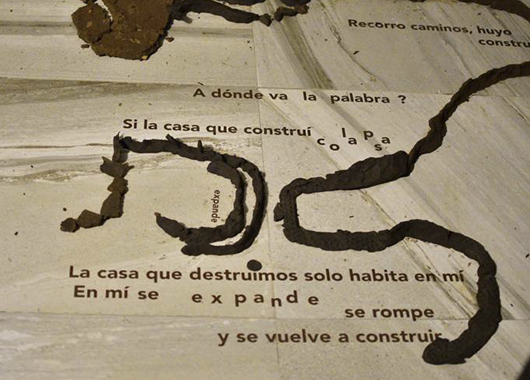 Recorro caminos, huyo
constru
A dónde va la palabra ?
Si la casa que construí colapsa
expande
La casa que destruimos solo habita en mí
En mí se expande
se rompe
y se vuelve a construir